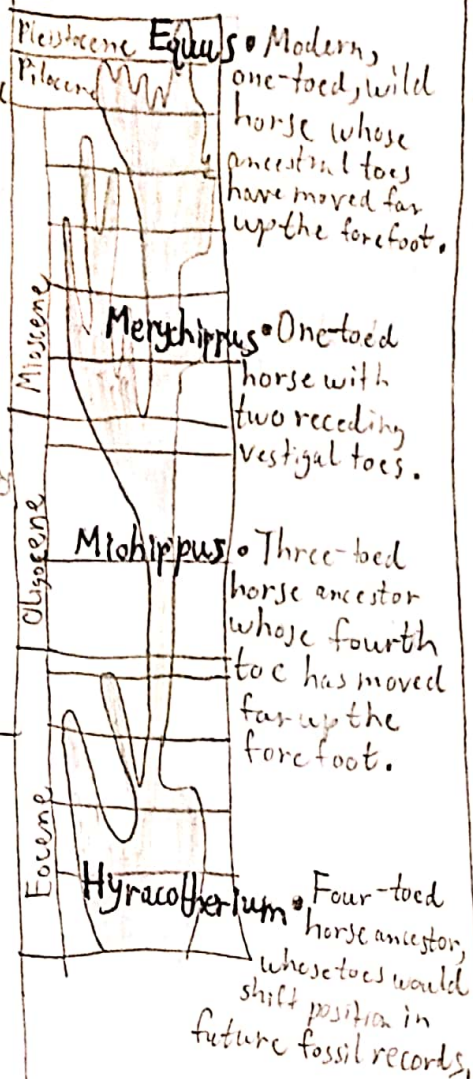 Pleistocene
Equus • Modern,
one-toed, wild
horse whose
ancestral toes
have moved far
up the forefoot.
Pilocene
Mioscene
Merychippus • One-toed
horse with
two receding
vestigal toes.
Oligocene
Miohippus • Three-toed
horse ancestor
whose fourth
toe has moved
far up the
forefoot.
Eocene
Hyracotherium • Four-toed
horse ancestor,
whose toes would
shift position in
future fossil records.